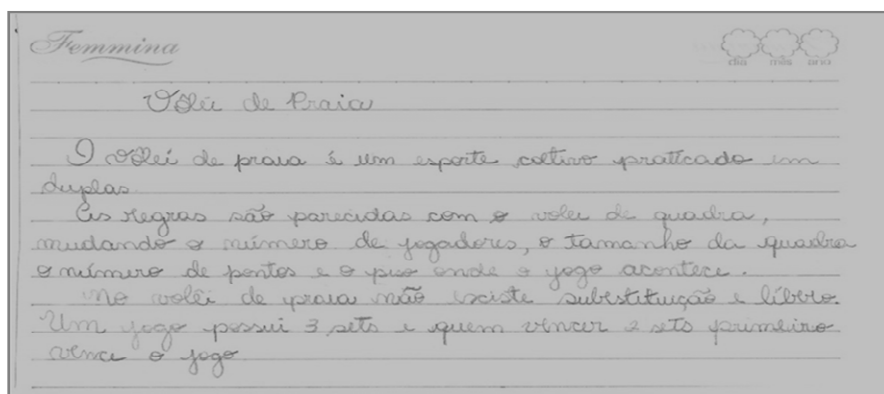 Femmina
dia mês ano
Vôlei de Praia
O vôlei de praia é um esporte coltivo praticado em
duplas.
As regras são parecidas com o volei de quadra,
mudando o número de jogadores, o tamanho da quadra
o número de pontos e o piso onde o jogo acontece.
No volêi de praia não exciste substituição e líbero.
Um jogo possui 3 sets e quem vencer 2 sets primeiro
vence o jogo